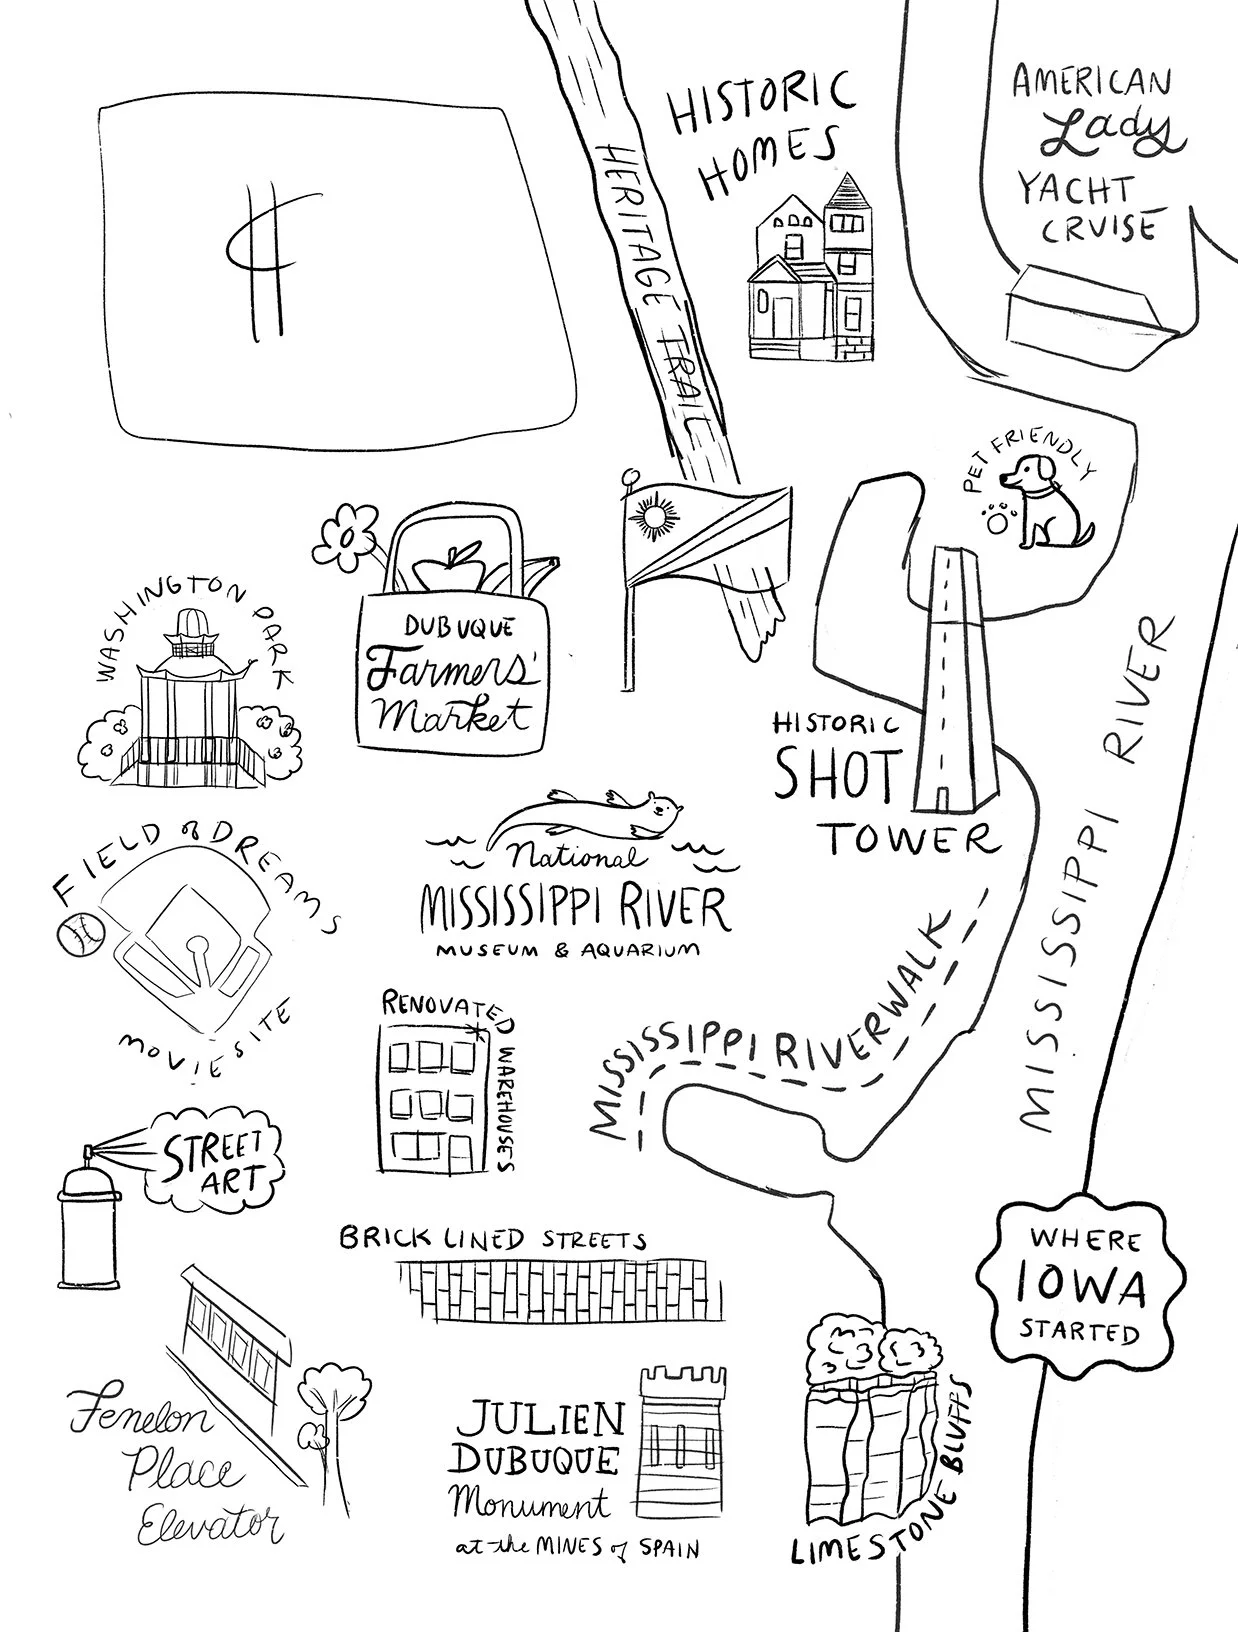 HISTORIC
HOMES
AMERICAN
Lady
YACHT
CRUISE
HERITAGE TRAIL
PET FRIENDLY
WASHINGTON PARK
DUBUQUE
Farmers'
Market
HISTORIC
SHOT
TOWER
MISSISSIPPI RIVER
FIELD of DREAMS
MOVIE SITE
National
MISSISSIPPI RIVER
MUSEUM & AQUARIUM
RENOVATED
WAREHOUSES
MISSISSIPPI RIVERWALK
STREET
ART
BRICK LINED STREETS
WHERE
IOWA
STARTED
Fenelon
Place
Elevator
JULIEN
DUBUQUE
Monument
at the MINES of SPAIN
LIMESTONE BLUFFS